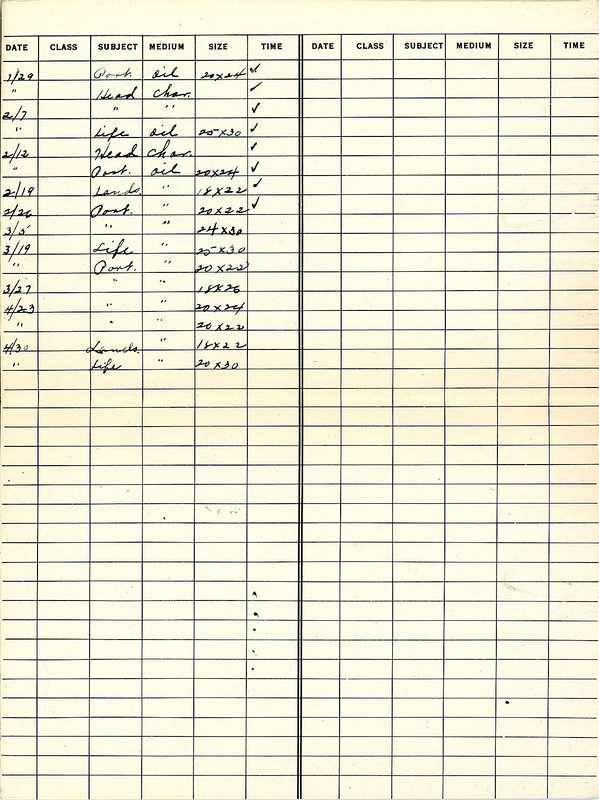 DATE CLASS SUBJECT MEDIUM SIZE TIME DATE CLASS SUBJECT MEDIUM SIZE TIME
1/29 Port. oil 20x24 ✓
" Head Char. ✓
2/7 " " ✓
" Life oil 25x30 ✓
2/12 Head Char. ✓
" Port. oil 20x24 ✓
2/19 Lands. " 18x22 ✓
2/26 Port. " 20x22 ✓
3/5 " " 24x30
3/19 Life " 25x30
" Port. " 20x22
3/27 " " 18x26
4/23 " " 20x24
" " " 20x22
4/30 Lands. " 18x22
" Life " 20x30